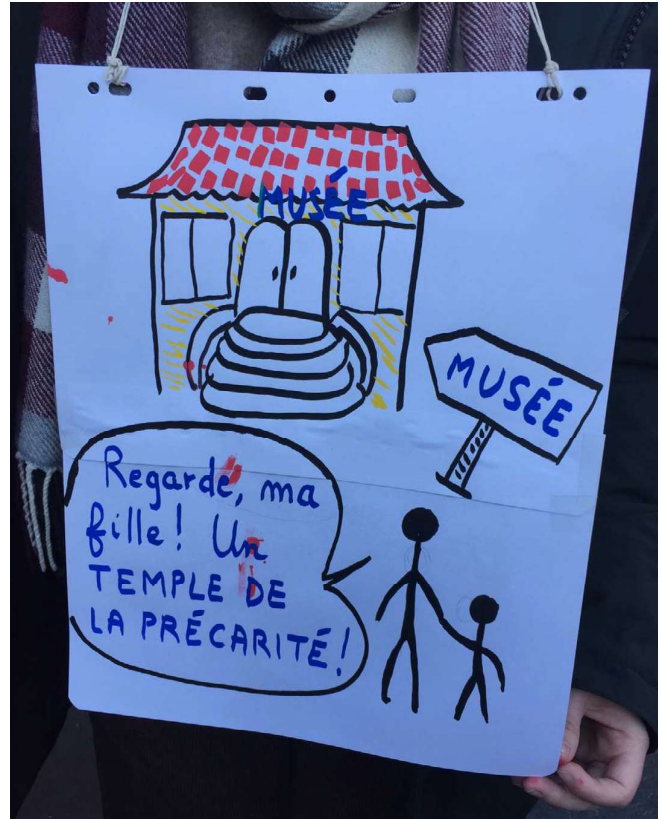 MUSÉE
MUSÉE
Regarde, ma
fille! Un
TEMPLE DE
LA PRÉCARITÉ!